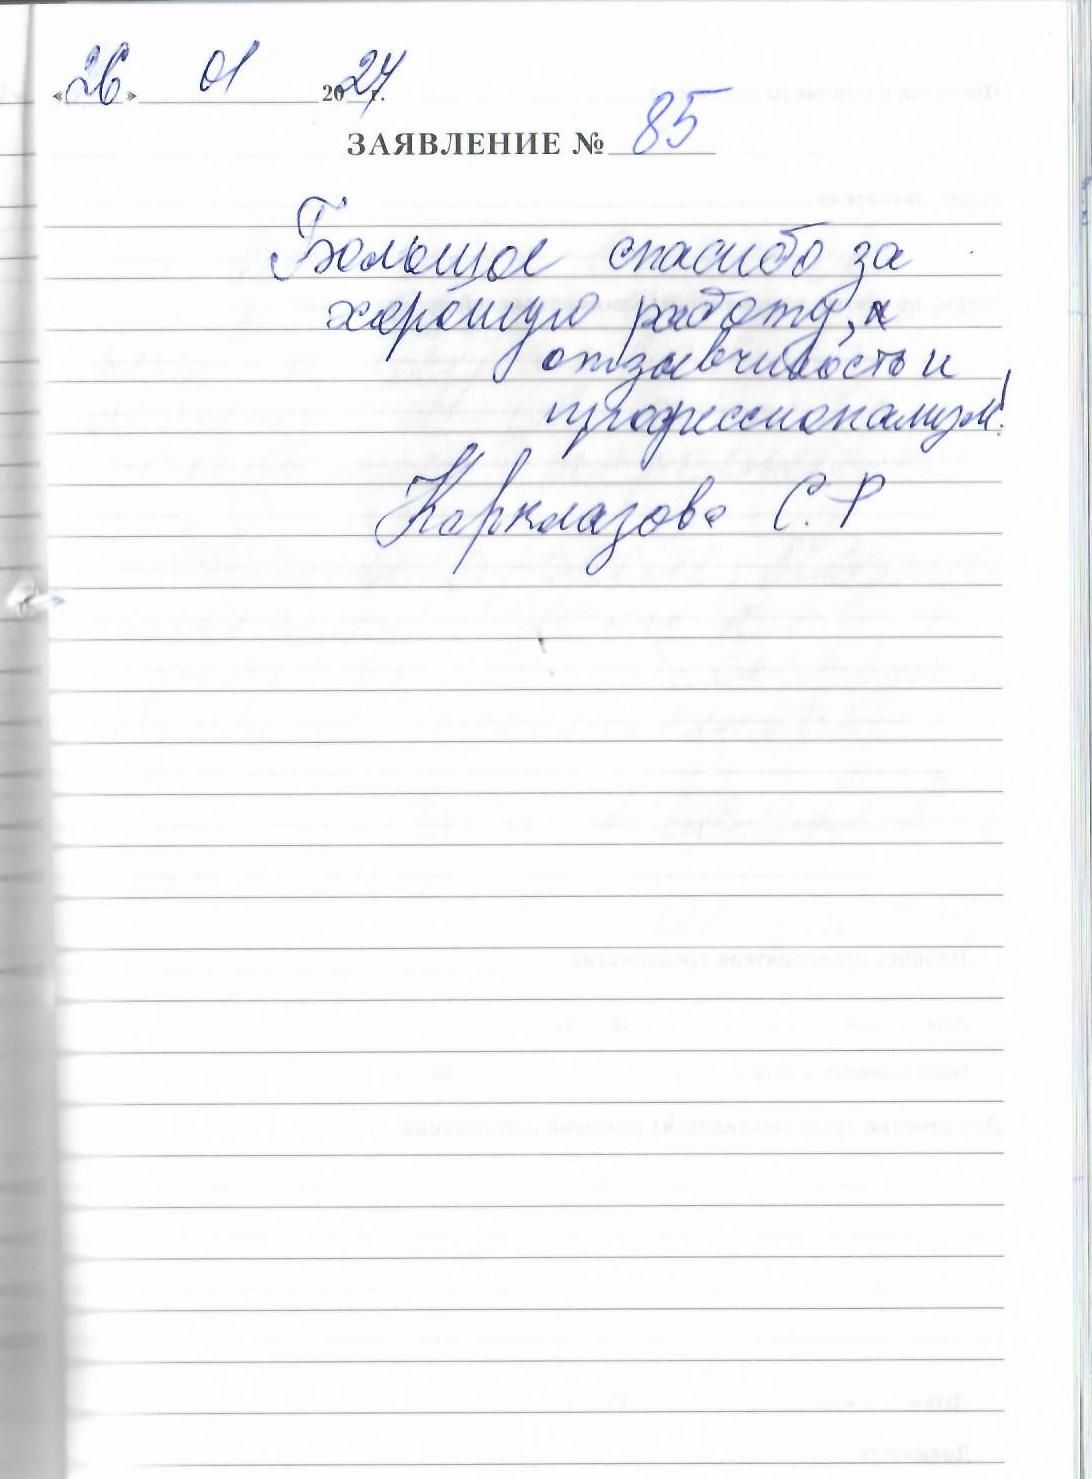 «26» 01 2024 г.
ЗАЯВЛЕНИЕ № 85
Большое спасибо за
хорошую работу, и
отзывчивость и
профессионализм!
Каркмазова С.Р